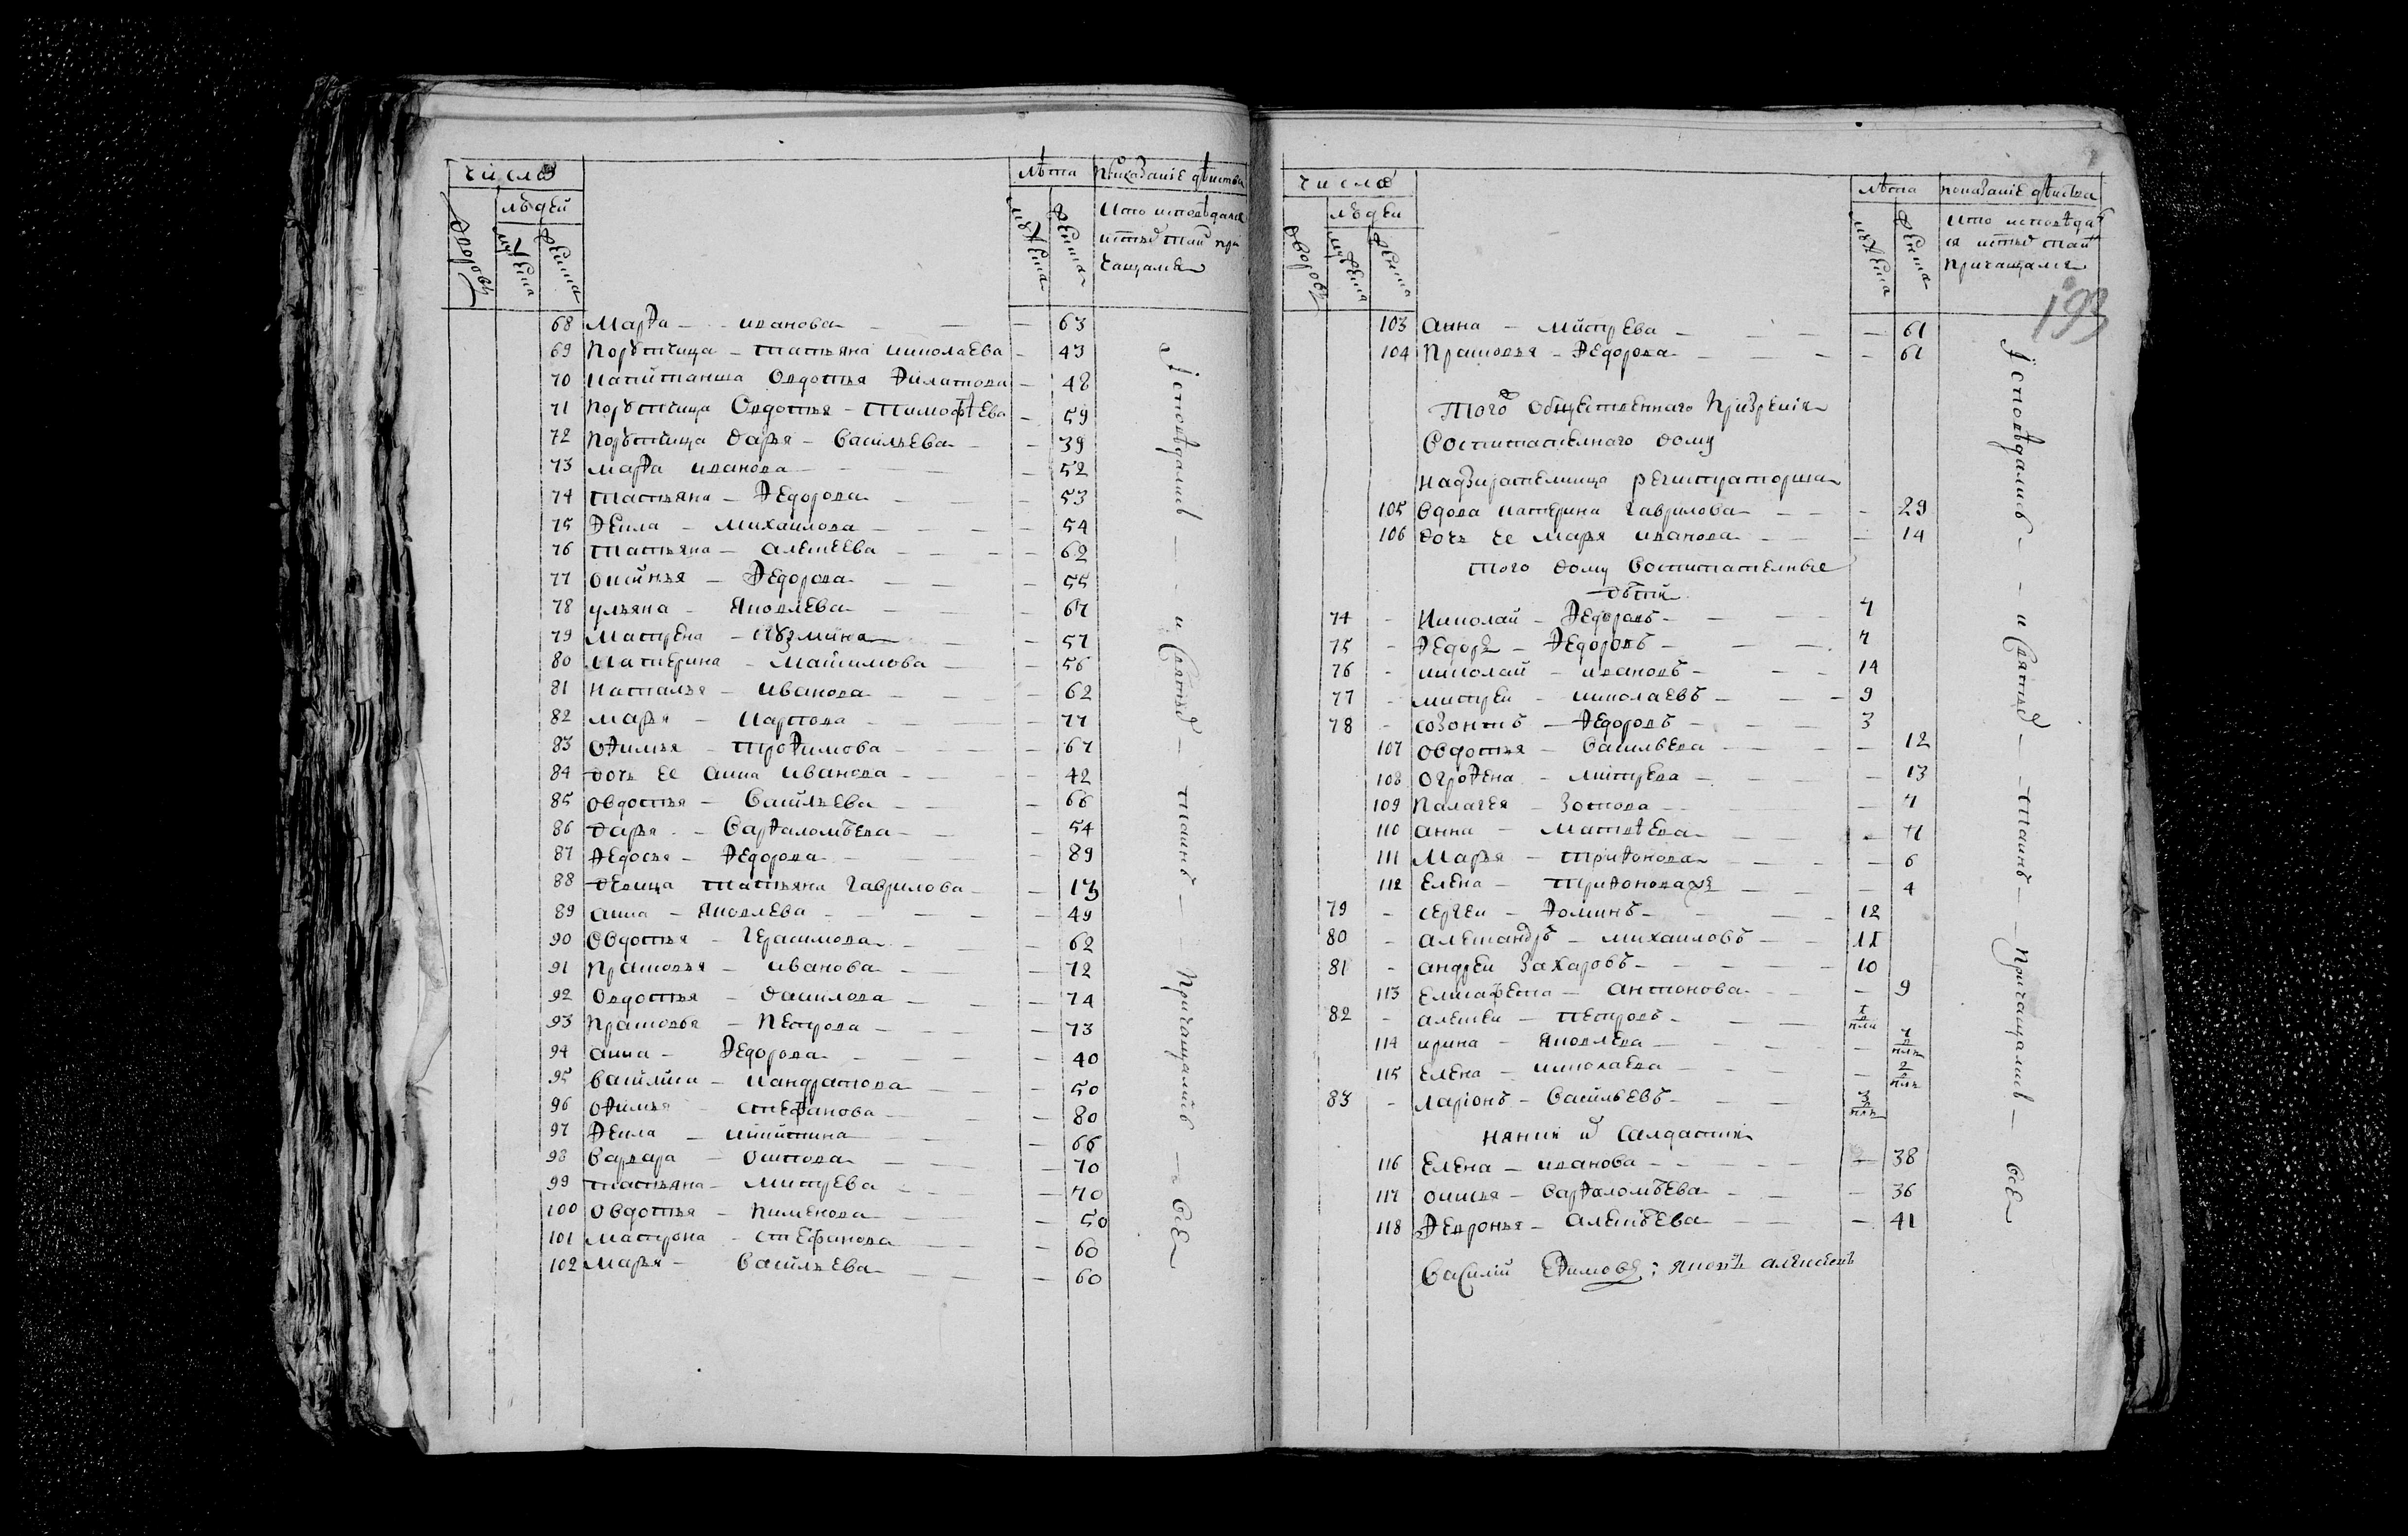 число
людей
дворовъ
мужеска
женска
лѣта
мужеска
женска
показанiе дѣиства
кто исповѣдался
и стыхъ таин при
чащался
68 Марѳа - - иванова - - - 63
69 Порутчица - татьяна николаева - 43
70 капитанша Овдотья Филатова - 48
71 Порутчица Овдотья - тимофѣева - 59
72 Порутчица дарья - Васильева - - 39
73 марѳа иванова - - - 52
74 татьяна - Ѳедорова - - - 53
75 Ѳекла - михаилова - - - 54
76 татьяна - алексеева - - - 62
77 оксинья - Ѳедорова - - - 55
78 ульяна - яковлева - - - 67
79 матрена - кузмина - - 57
80 катерина - макимова - - 56
81 наталья - иванова - - - 62
82 марья - карпова - - - 77
83 оѳимья - троѳимова - - - 67
84 дочь ее анна иванова - - - 42
85 овдотья - васильева - - - 66
86 дарья - варѳаломѣева - - - 54
87 Ѳедосья - Ѳедорова - - - 89
88 девица татьяна гаврилова - - 13
89 анна - яковлева - - - 49
90 овдотья - герасимова - - - 62
91 Прасковья - иванова - - - 72
92 овдотья - данилова - - - 74
93 Прасковья - Петрова - - - 73
94 анна - Ѳедорова - - - 40
95 василиса - кандратова - - 50
96 оѳимья - стефанова - - 80
97 Ѳекла - никитина - - 66
98 варвара - осипова - - - 70
99 татьяна - митрева - - 70
100 овдотья - пименова - - - 50
101 матрона - стефанова - - - 60
102 марья - васильева - - - 60
Iсповѣдались - - и святыхъ - таинъ - Причащались - всѣ
число
людеи
дворовъ
мужеска
женска
лѣта
мужеска
женска
показанiе дѣиства
кто исповѣдал
ся и стыхъ таин
причащался
193
103 анна - митрева - - - 61
104 Прасковья - Ѳедорова - - - 61
того Общественнаго Призренiя
Воспитателнаго дому
надзирателница регистраторша
105 вдова катерина гаврилова - - - 29
106 дочь ее марья иванова - - - 14
того дому воспитателные
дѣти
74 - николай - Ѳедоровъ - - - 7
75 - Ѳедоръ - Ѳедоровъ - - - 7
76 - николай - ивановъ - - - 14
77 - митреи - николаевъ - - - 9
78 - созонтъ - Ѳедоровъ - - 3
107 овдотья - васильева - - - 12
108 огроѳена - митрева - - - 13
109 палагея - зотова - - - 7
110 анна - матвѣева - - - 11
111 марья - триѳонова - - - 6
112 елена - триѳонова - - - 4
79 - сергеи - Ѳоминъ - - - 12
80 - александръ - михаиловъ - - 11
81 - андреи захаровъ - - - 10
113 елисавета - антонова - - - 9
82 - алексеи - петровъ - - -
114 ирина - яковлева - - -
115 елена - николаева - - -
83 - ларiонъ - васильевъ - - - 3
няни и салдатки
116 елена - иванова - - - 38
117 оксинья - варѳаломѣева - - - 36
118 Ѳевронья - алексѣева - - - 41
Василiй Ефимовъ : яковъ алексѣевъ
Iсповѣдались - - и святыхъ - - таинъ - Причащались - всѣ